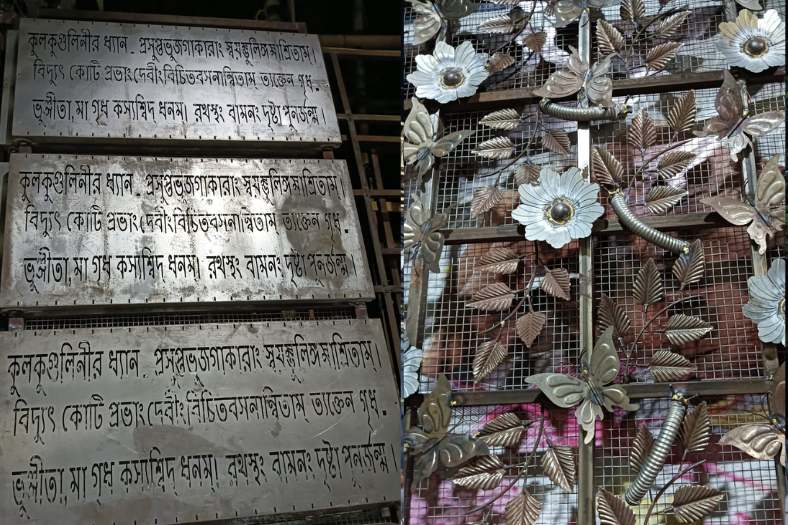 কুলকুণ্ডলিনীর ধ্যান. প্রসুপ্তভুজগাকারাং স্বয়ম্ভুলিঙ্গমাশ্রিতাম্।
বিদ্যুৎ কোটি প্রভাং দেবীং বিচিত্রবসনান্বিতাম্ ত্যক্তেন গৃধ.
ভুঞ্জীতা, মা গৃধ কস্যস্বিদ্ ধনম্। রথস্থং বামনং দৃষ্টা পুনর্জন্ম।
কুলকুণ্ডলিনীর ধ্যান. প্রসুপ্তভুজগাকারাং স্বয়ম্ভুলিঙ্গমাশ্রিতাম্।
বিদ্যুৎ কোটি প্রভাং দেবীং বিচিত্রবসনান্বিতাম্ ত্যক্তেন গৃধ.
ভুঞ্জীতা, মা গৃধ কস্যস্বিদ্ ধনম্। রথস্থং বামনং দৃষ্টা পুনর্জন্ম।
কুলকুণ্ডলিনীর ধ্যান. প্রসুপ্তভুজগাকারাং স্বয়ম্ভুলিঙ্গমাশ্রিতাম্।
বিদ্যুৎ কোটি প্রভাং দেবীং বিচিত্রবসনান্বিতাম্ ত্যক্তেন গৃধ.
ভুঞ্জীতা, মা গৃধ কস্যস্বিদ্ ধনম্। রথস্থং বামনং দৃষ্টা পুনর্জন্ম